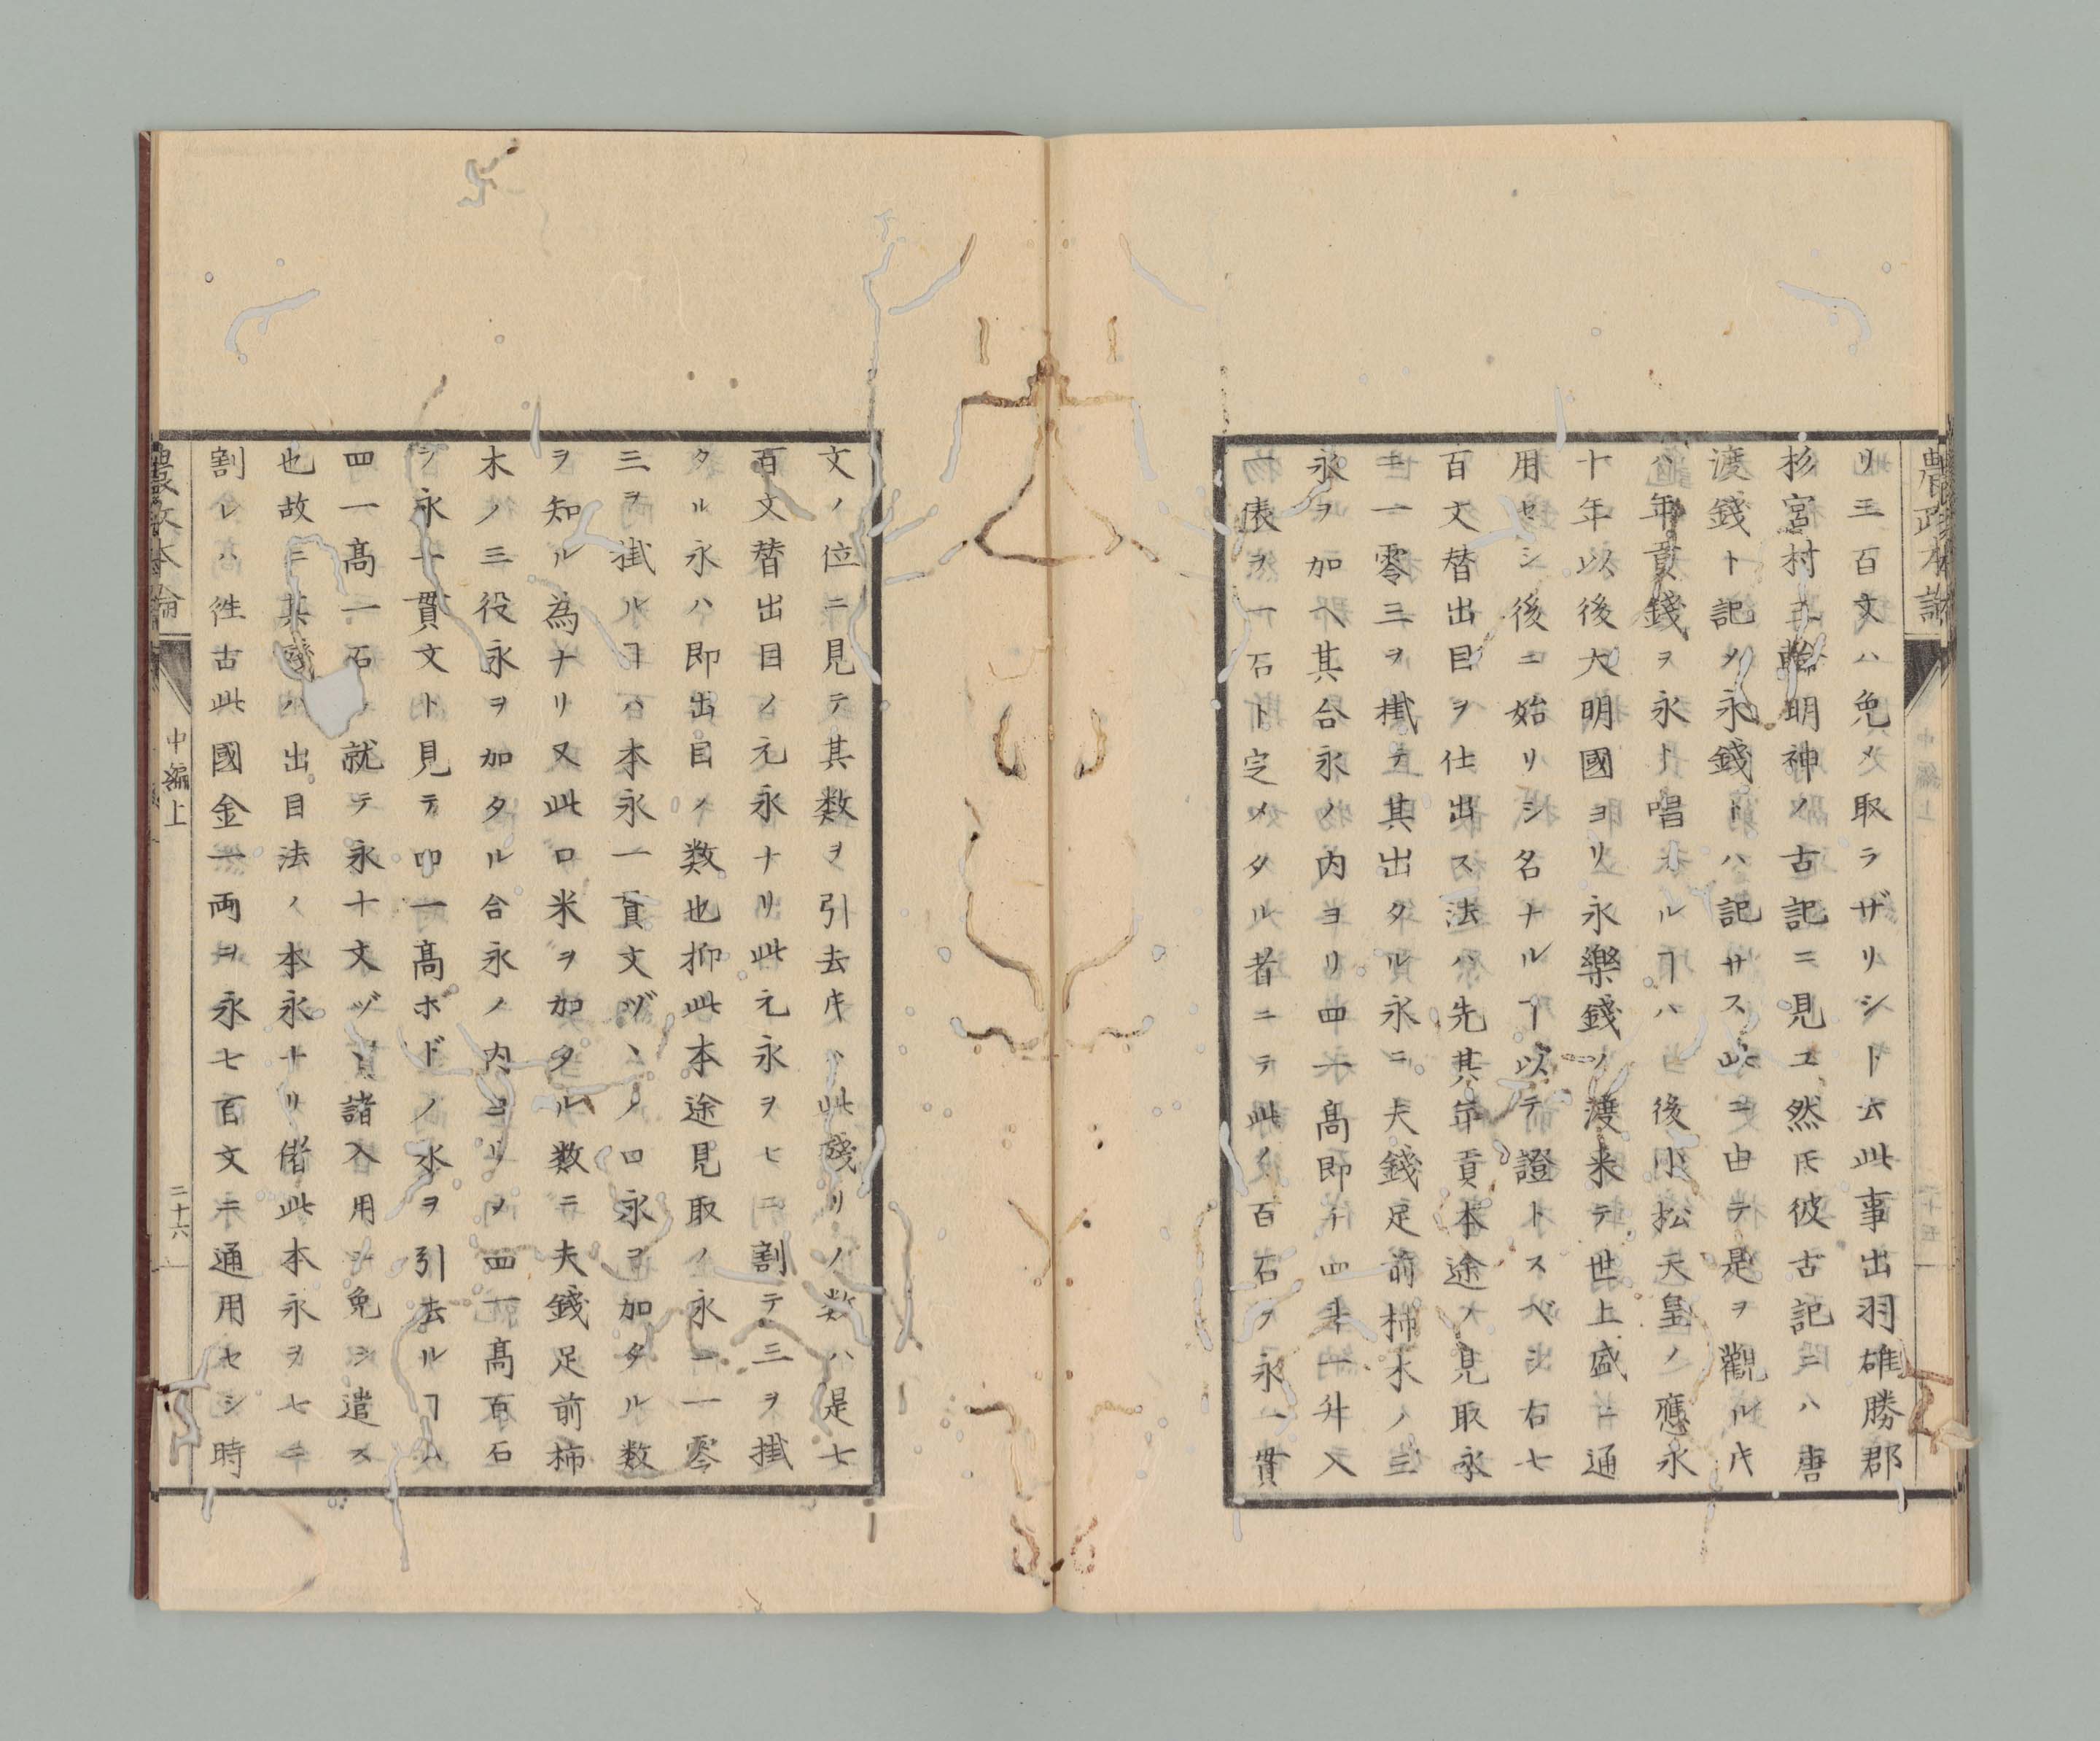 農政本論
リ三百文ハ免メ取ラザリシト云此事出羽雄勝郡
杉宮村三輪明神ノ古記ニ見ユ然𪜈彼古記ニハ唐
渡錢ト記メ永錢トハ記サス此ニ由テ是ヲ觀ル𪜈
ハ年貢錢ヲ永ト唱ルヿハ後小松天皇ノ應永
十年以後大明國ヨリ永樂錢ノ渡来テ世上盛ニ通
用セシ後ニ始リシ名ナルヿ以テ證トスベシ右七
百文替出目ヲ仕出ス法ハ先其年貢本途ノ見取永
ニ一零三ヲ掛テ其出タル永ニ夫錢足前柿木ノ三
永ヲ加ヘ其合永ノ内ヨリ四一高即チ四斗一升入
俵ヲ一石ト定メタル者ニテ此ノ百石ヲ永一貫
文ノ位ニ見テ其数ヲ引去𪜈ハ此殘リノ数ハ是七
百文替出目ノ元永ナリ此元永ヲ七ニ割テ三ヲ掛
タル永ハ即出目ノ数也抑此本途見取ノ永ニ一零
三ヲ掛ルヿハ本永一貫文ヅヽノ口永ヲ加タル数
ヲ知ル為ナリ又此口米ヲ加タル数ニ夫錢足前柿
木ノ三役永ヲ加タル合永ノ内ヨリメ四一高百石
ヲ永一貫文ト見テ四一高ホドノ永ヲ引去ルヿハ
四一高一石ニ就テ永十文ヅヽ諸入用シ免シ遣ス
也故ニ其殘ハ出目法ノ本永ナリ偖此本永ヲ七ニ
割レハ徃古此國金一両ヲ永七百文ニ通用セシ時
農政本論
中編上
二十六